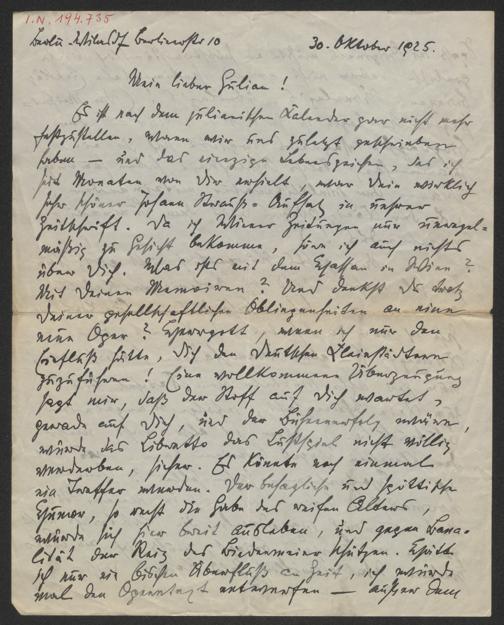 I.N. 194.735
Berlin Wilmsdf Berlinerstr 10 30. Oktober 1925.
Mein lieber Julian!
Es ist nach dem julianischen Kalender gar nicht mehr
festzustellen, wann wir uns zuletzt geschrieben
haben — und das einzige Lebenszeichen, das ich
seit Monaten von Dir erhielt, war Dein wirklich
sehr schöner Johann Strauss-Aufsatz in unsrer
Zeitschrift. Da ich Wiener Zeitungen nur unregel-
mäßig zu Gesicht bekomme, höre ich auch nichts
über Dich. Was ists mit dem Schaffen in Wien?
Mit Deinen Memoiren? Und denkst Du trotz
Deiner gesellschaftlichen Obliegenheiten an eine
neue Oper? Herrgott, wenn ich nur den
Einfluß hätte, Dich den Deutschen Kleinstädtern
zuzuführen! Eine vollkommene Überzeugung
sagt mir, daß der Stoff auf Dich wartet,
gerade auf Dich, und der Bühnenerfolg wäre,
würde das Libretto das Lustspiel nicht völlig
verderben, sicher. Es könnte noch einmal
ein Treffer werden. Der behagliche und spöttische
Humor, so recht die Gabe des reifen Alters,
würde sich hier breit ausleben, und gegen Bana-
lität der Reiz des Biedermeier schützen. Hätte
ich nur ein bißchen Überfluß an Zeit, ich würde
mal den Operntext entwerfen — außer dem